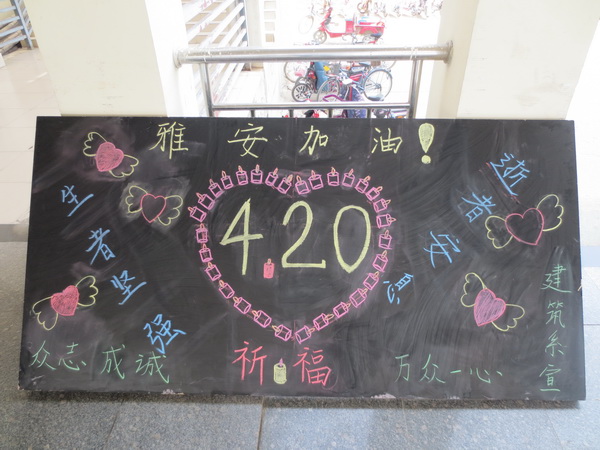 雅安加油!
生者坚强
逝者安息
4.20
众志成诚
祈福
万众一心
建筑系宣